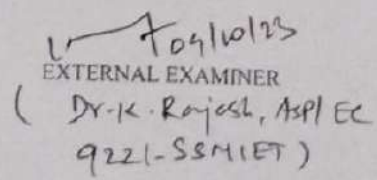 09/10/23
EXTERNAL EXAMINER
( Dr. K. Rajesh, ASP/ EC
9221-SSMIET )